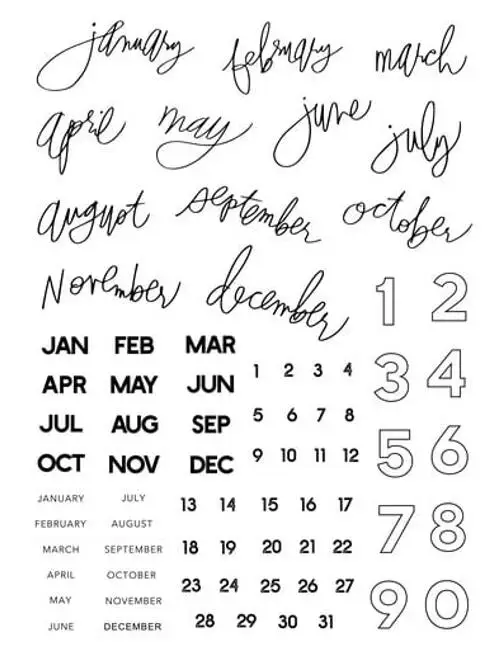 january february march
april may june july
august september october
November december
1 2
3 4
5 6
7 8
9 0
JAN FEB MAR
APR MAY JUN
JUL AUG SEP
OCT NOV DEC
1 2 3 4
5 6 7 8
9 10 11 12
13 14 15 16 17
18 19 20 21 22
23 24 25 26 27
28 29 30 31
JANUARY JULY
FEBRUARY AUGUST
MARCH SEPTEMBER
APRIL OCTOBER
MAY NOVEMBER
JUNE DECEMBER